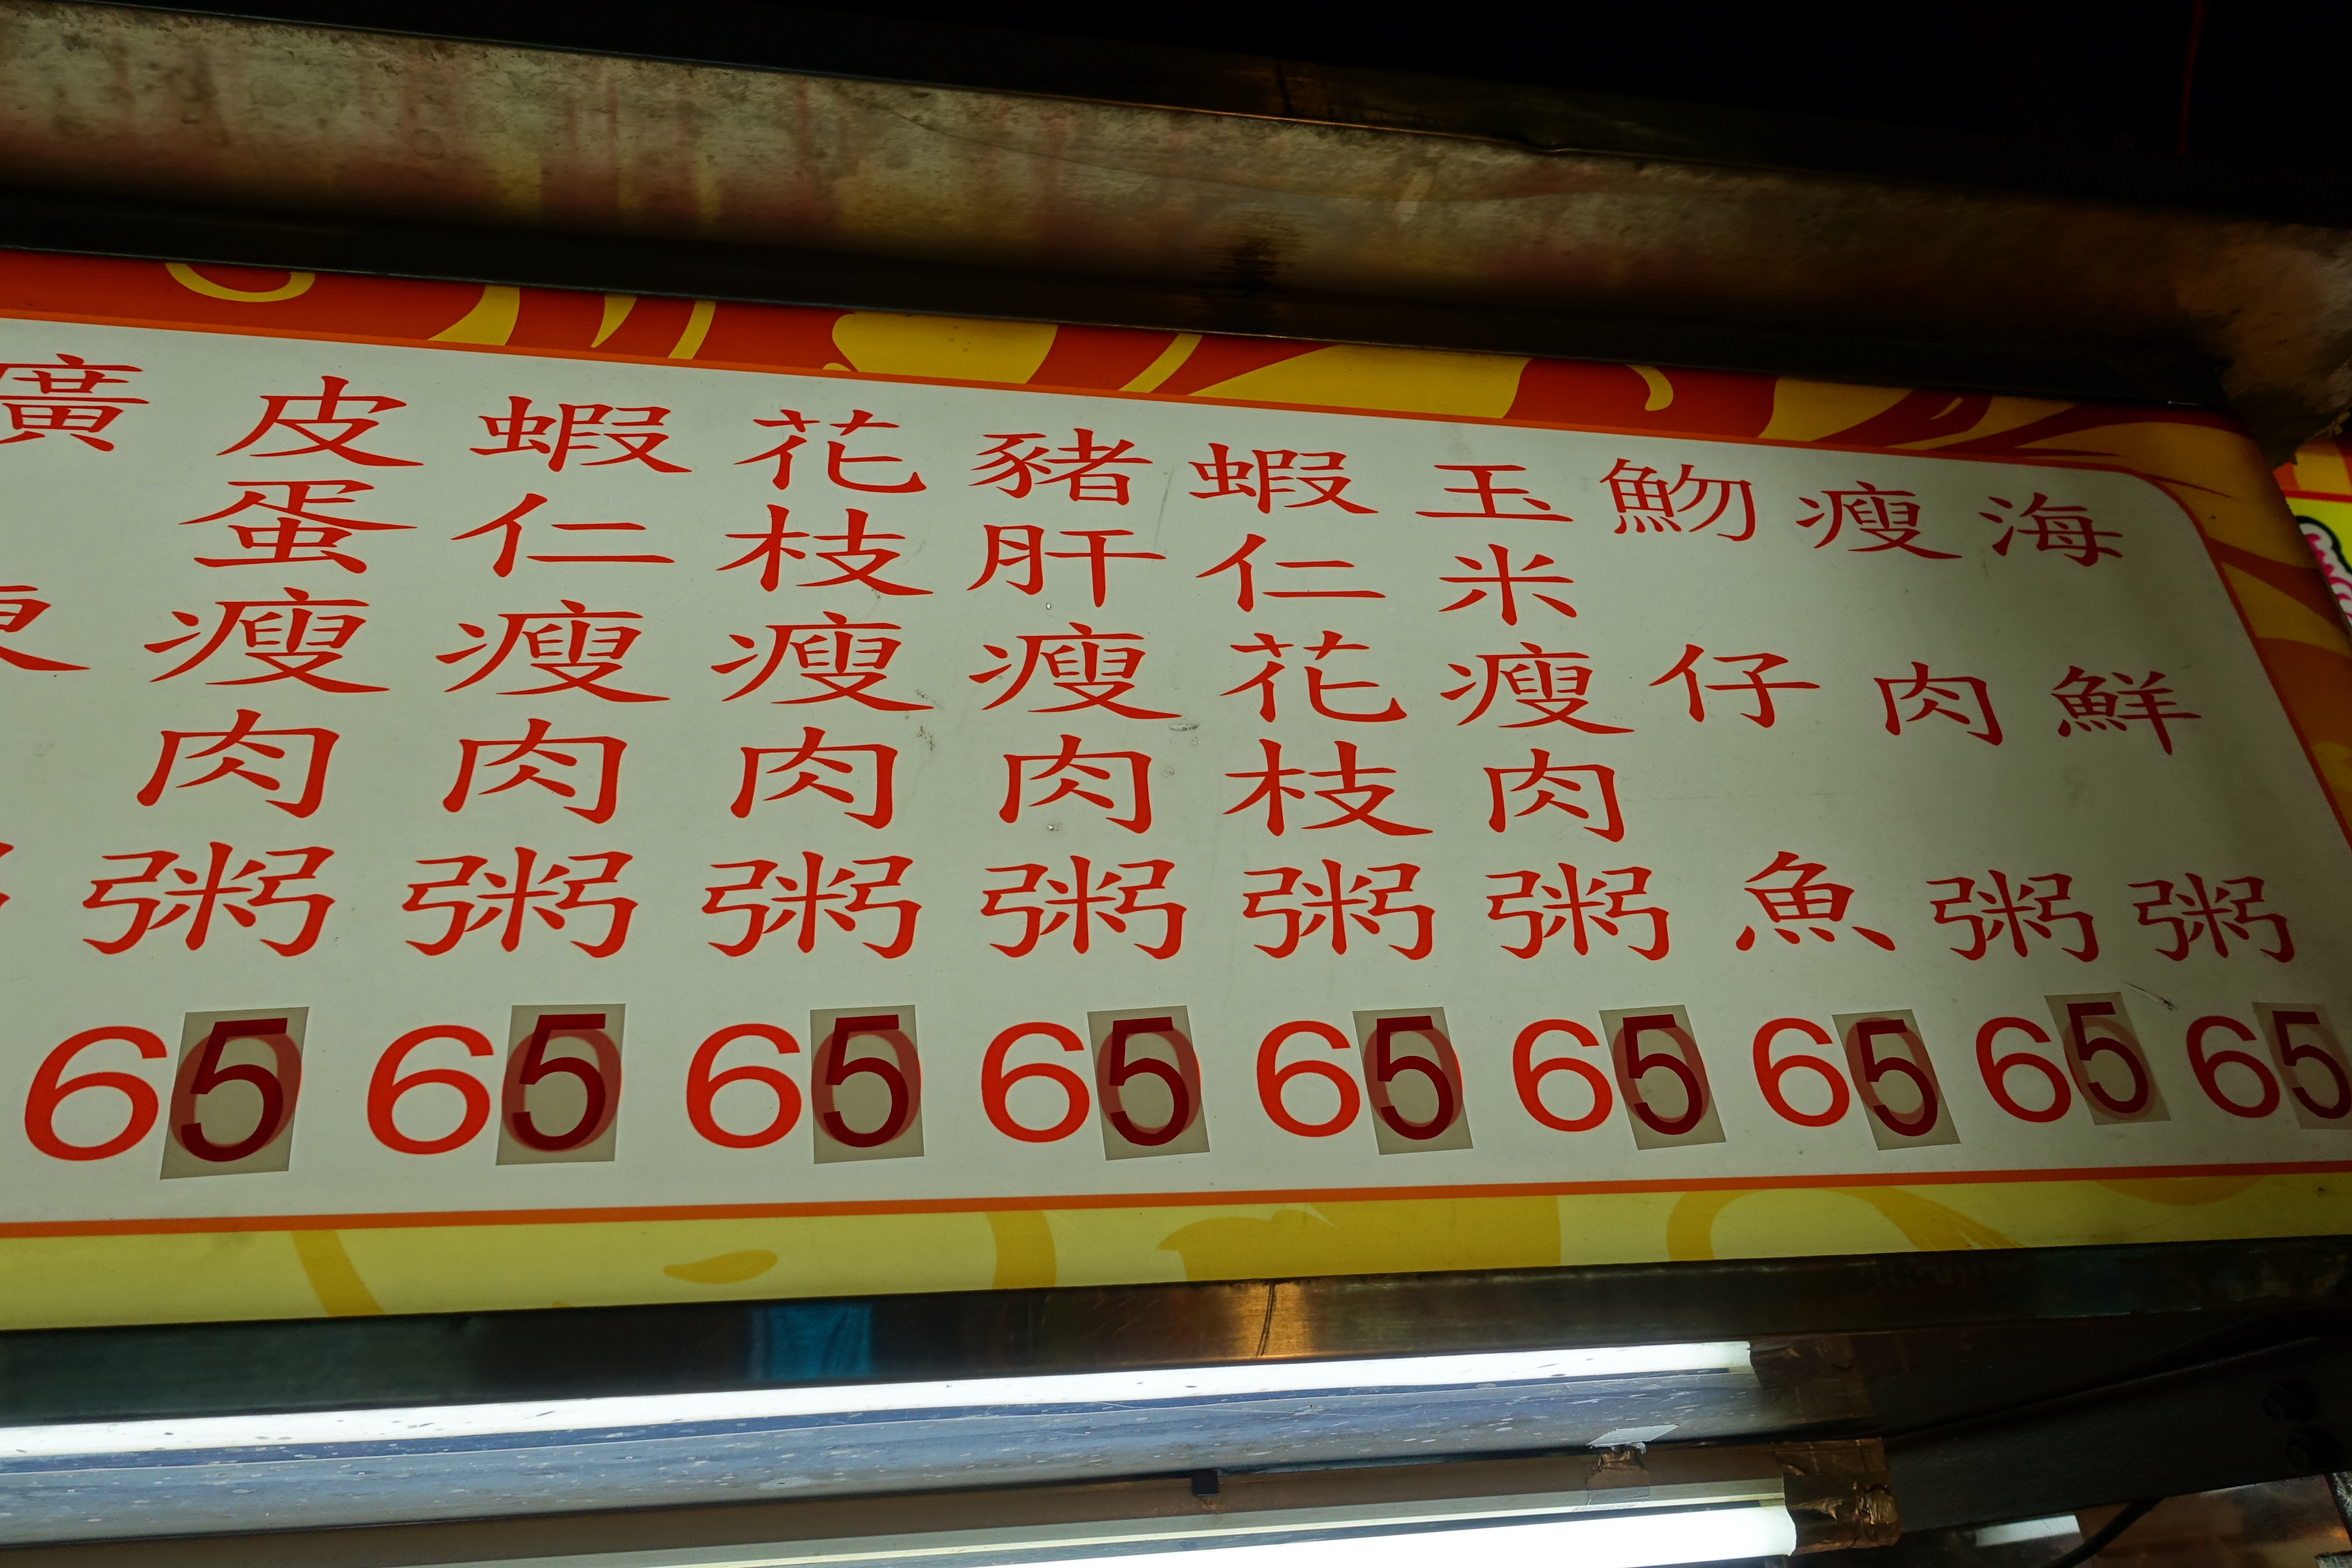 海鮮粥
65
瘦肉粥
65
魩仔魚
65
玉米瘦肉粥
65
蝦仁花枝粥
65
豬肝瘦肉粥
65
花枝瘦肉粥
65
蝦仁瘦肉粥
65
皮蛋瘦肉粥
65
廣